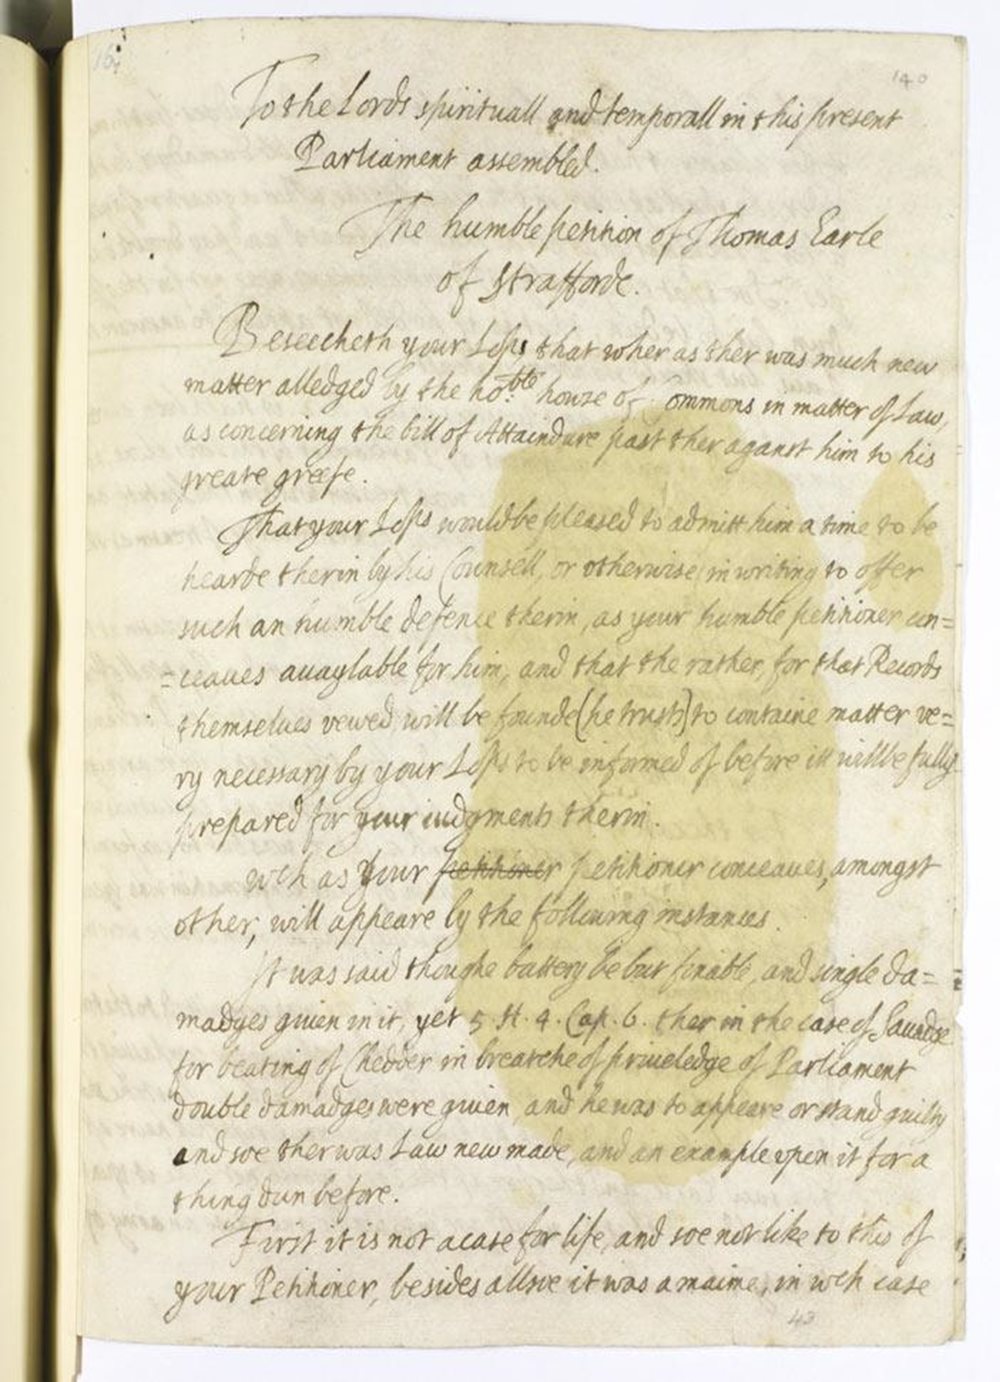 16.
140
To the Lords spirituall and temporall in this present
Parliament assembled.
The humble petition of Thomas Earle
of Strafforde.
Beseecheth your Lops that wher as ther was much new
matter alledged by the hoble house of Commons in matter of Law,
as concerning the bill of Attaindure past ther aganst him to his
greate greefe.
That your Lops would be pleased to admitt him a time to be
hearde therin by his Counsell, or otherwise in writing to offer
such an humble defence therin, as your humble petitioner con=
=ceaues auaylable for him, and that the rather, for that Records
themselues vewed, will be founde (he trusts) to containe matter ve=
ry necessary by your Lops to be informed of before itt will be fully
prepared for your iudgments therin.
wch as your petitioner petitioner conceaues, amongst
other, will appeare by the following instances.
It was said thoughe battery be but finable, and single da=
madges giuen in it, yet 5. H. 4. Cap. 6. ther in the case of Sauadge
for beating of Chedder in breatche of priueledge of Parliament
double damadges were giuen, and he was to appeare or stand guilty
and soe ther was Law new made, and an example upon it for a
thing dun before.
First it is not a case for life, and soe not like to this of
your Petitioner, besides allsoe it was a maime, in wch case
43